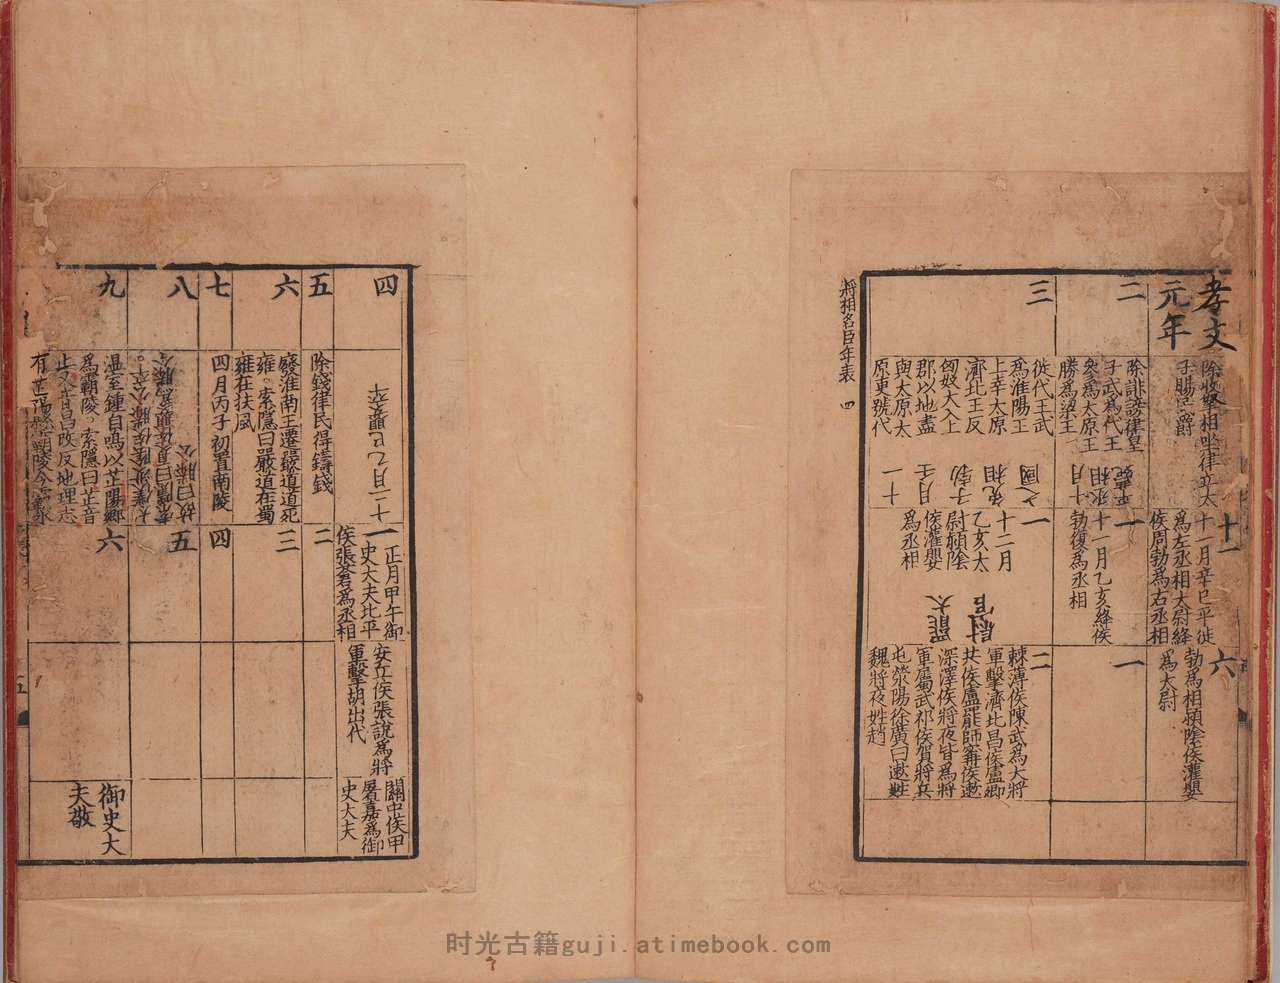 孝文
元年
除收孥相坐律立太
子賜民爵
十一
十一月辛巳平徙
為左丞相太尉絳
侯周勃為右丞相
六
勃為相潁隂侯灌嬰
為太尉
二
除誹謗律皇
子武為代王
參為太原王
勝為梁王
十月
丞相
平薨
一
十一月乙亥絳侯
勃復為丞相
一
三
徙代王武
為淮陽王
上幸太原
濟北王反
匈奴大入上
郡以地盡
與太原太
原更號代
十一
月壬
子勃
免相
之國
一
十二月
乙亥太
尉潁隂
侯灌嬰
為丞相
罷太
尉官
二
棘蒲侯陳武為大將
軍擊濟北昌侯盧卿
共侯盧罷師甯侯遬
深澤侯將夜皆為將
軍屬武祁侯賀將兵
屯滎陽徐廣曰遬姓
魏將夜姓趙
將相名臣年表
四
四
十二月己巳嬰卒
一
正月甲午御
史大夫北平
侯張蒼為丞相
安丘侯張說為將
軍擊胡出代
關中侯申
屠嘉為御
史大夫
五
除錢律民得鑄錢
二
六
廢淮南王遷嚴道道死
雍。索隱曰嚴道在蜀
雍在扶風
三
七
四月丙子初置南陵
四
八
太僕汝隂侯滕公卒。
索隱曰夏侯嬰為滕令
故曰滕公
五
九
温室鍾自鳴以芷陽鄉
為霸陵。索隱曰芷音
止又音昌改反地理志
有芷陽縣
六
御史大
夫敬
五
时光古籍guji.atimebook.com